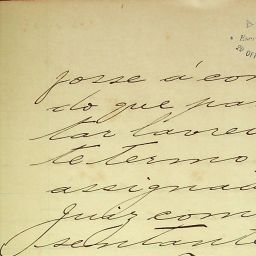 posse á con
do que pa
tar lavre
te termo
assignad
Juiz com
sentante